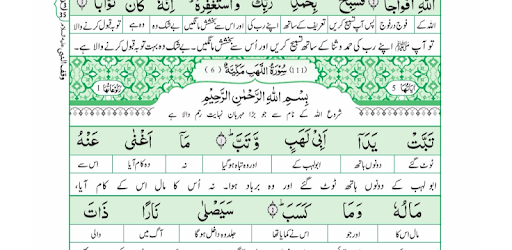 اللّٰهِ اَفْوَاجًا فَسَبِّحْ بِحَمْدِ رَبِّكَ وَاسْتَغْفِرْهُ اِنَّهٗ كَانَ تَوَّابًا
اللہ کے فوج در فوج پس آپ تسبیح کریں تعریف کے ساتھ اپنے رب کی اور اس سے بخشش مانگیں بے شک وہ وہ ہے توبہ قبول کرنے والا
تو آپ ﷺ اپنے رب کی حمد و ثنا کے ساتھ تسبیح کریں اور اُس سے بخشش مانگیں۔ بے شک وہ بہت توبہ قبول کرنے والا ہے۔
35
وقف النبی علیہ السلام
رکوعاتها 1 (111) سُوْرَةُ اللَّهَبِ مَكِّيَّةٌ (6) اٰیاتها 5
بِسْمِ اللّٰهِ الرَّحْمٰنِ الرَّحِيْمِ
شروع اللہ کے نام سے جو بڑا مہربان نہایت رحم والا ہے
تَبَّتْ يَدَآ اَبِيْ لَهَبٍ وَّتَبَّ ۞ مَآ اَغْنٰى عَنْهُ
ٹوٹ گئے دونوں ہاتھ ابولہب کے اور وہ تباہ ہوگیا نہ وہ کام آیا اس سے
ابو لہب کے دونوں ہاتھ ٹوٹ گئے اور وہ برباد ہوا۔ نہ اُس کا مال اس کے کام آیا،
مَالُهٗ وَمَا كَسَبَ ۞ سَيَصْلٰى نَارًا ذَاتَ
مال اس کا اور جو اس نے کمایا تھا جلد وہ داخل ہوگا آگ میں والی